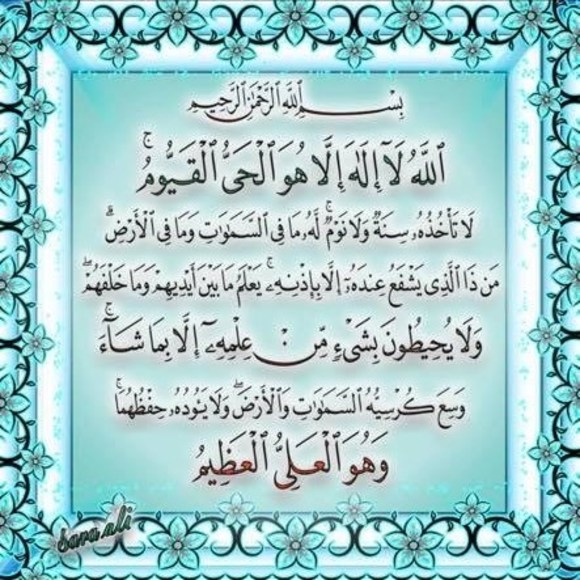 بِسْمِ ٱللَّهِ ٱلرَّحْمَٰنِ ٱلرَّحِيمِ
ٱللَّهُ لَآ إِلَٰهَ إِلَّا هُوَ ٱلْحَىُّ ٱلْقَيُّومُ ۚ
لَا تَأْخُذُهُۥ سِنَةٌ وَلَا نَوْمٌ ۚ لَّهُۥ مَا فِى ٱلسَّمَٰوَٰتِ وَمَا فِى ٱلْأَرْضِ ۗ
مَن ذَا ٱلَّذِى يَشْفَعُ عِندَهُۥٓ إِلَّا بِإِذْنِهِۦ ۚ يَعْلَمُ مَا بَيْنَ أَيْدِيهِمْ وَمَا خَلْفَهُمْ ۖ
وَلَا يُحِيطُونَ بِشَىْءٍ مِّنْ عِلْمِهِۦٓ إِلَّا بِمَا شَآءَ ۚ
وَسِعَ كُرْسِيُّهُ ٱلسَّمَٰوَٰتِ وَٱلْأَرْضَ ۖ وَلَا يَـُٔودُهُۥ حِفْظُهُمَا ۚ
وَهُوَ ٱلْعَلِىُّ ٱلْعَظِيمُ
Sara ali